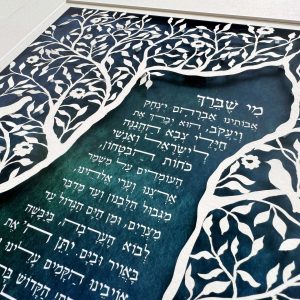 מִי שֶׁבֵּרַךְ
אבותינו אברהם יצחק
ויעקב, הוא יברך את
חיילי צבא ההגנה
לישראל ואנשי
כחות הבטחון,
העומדים על משמר
ארצנו וערי אלהינו,
מגבול הלבנון ועד מדבר
מצרים, ומן הים הגדול עד
לבוא הערבה ביבשה
באויר ובים. יתן
את
אויבינו הקמים עלינו
הקדוש